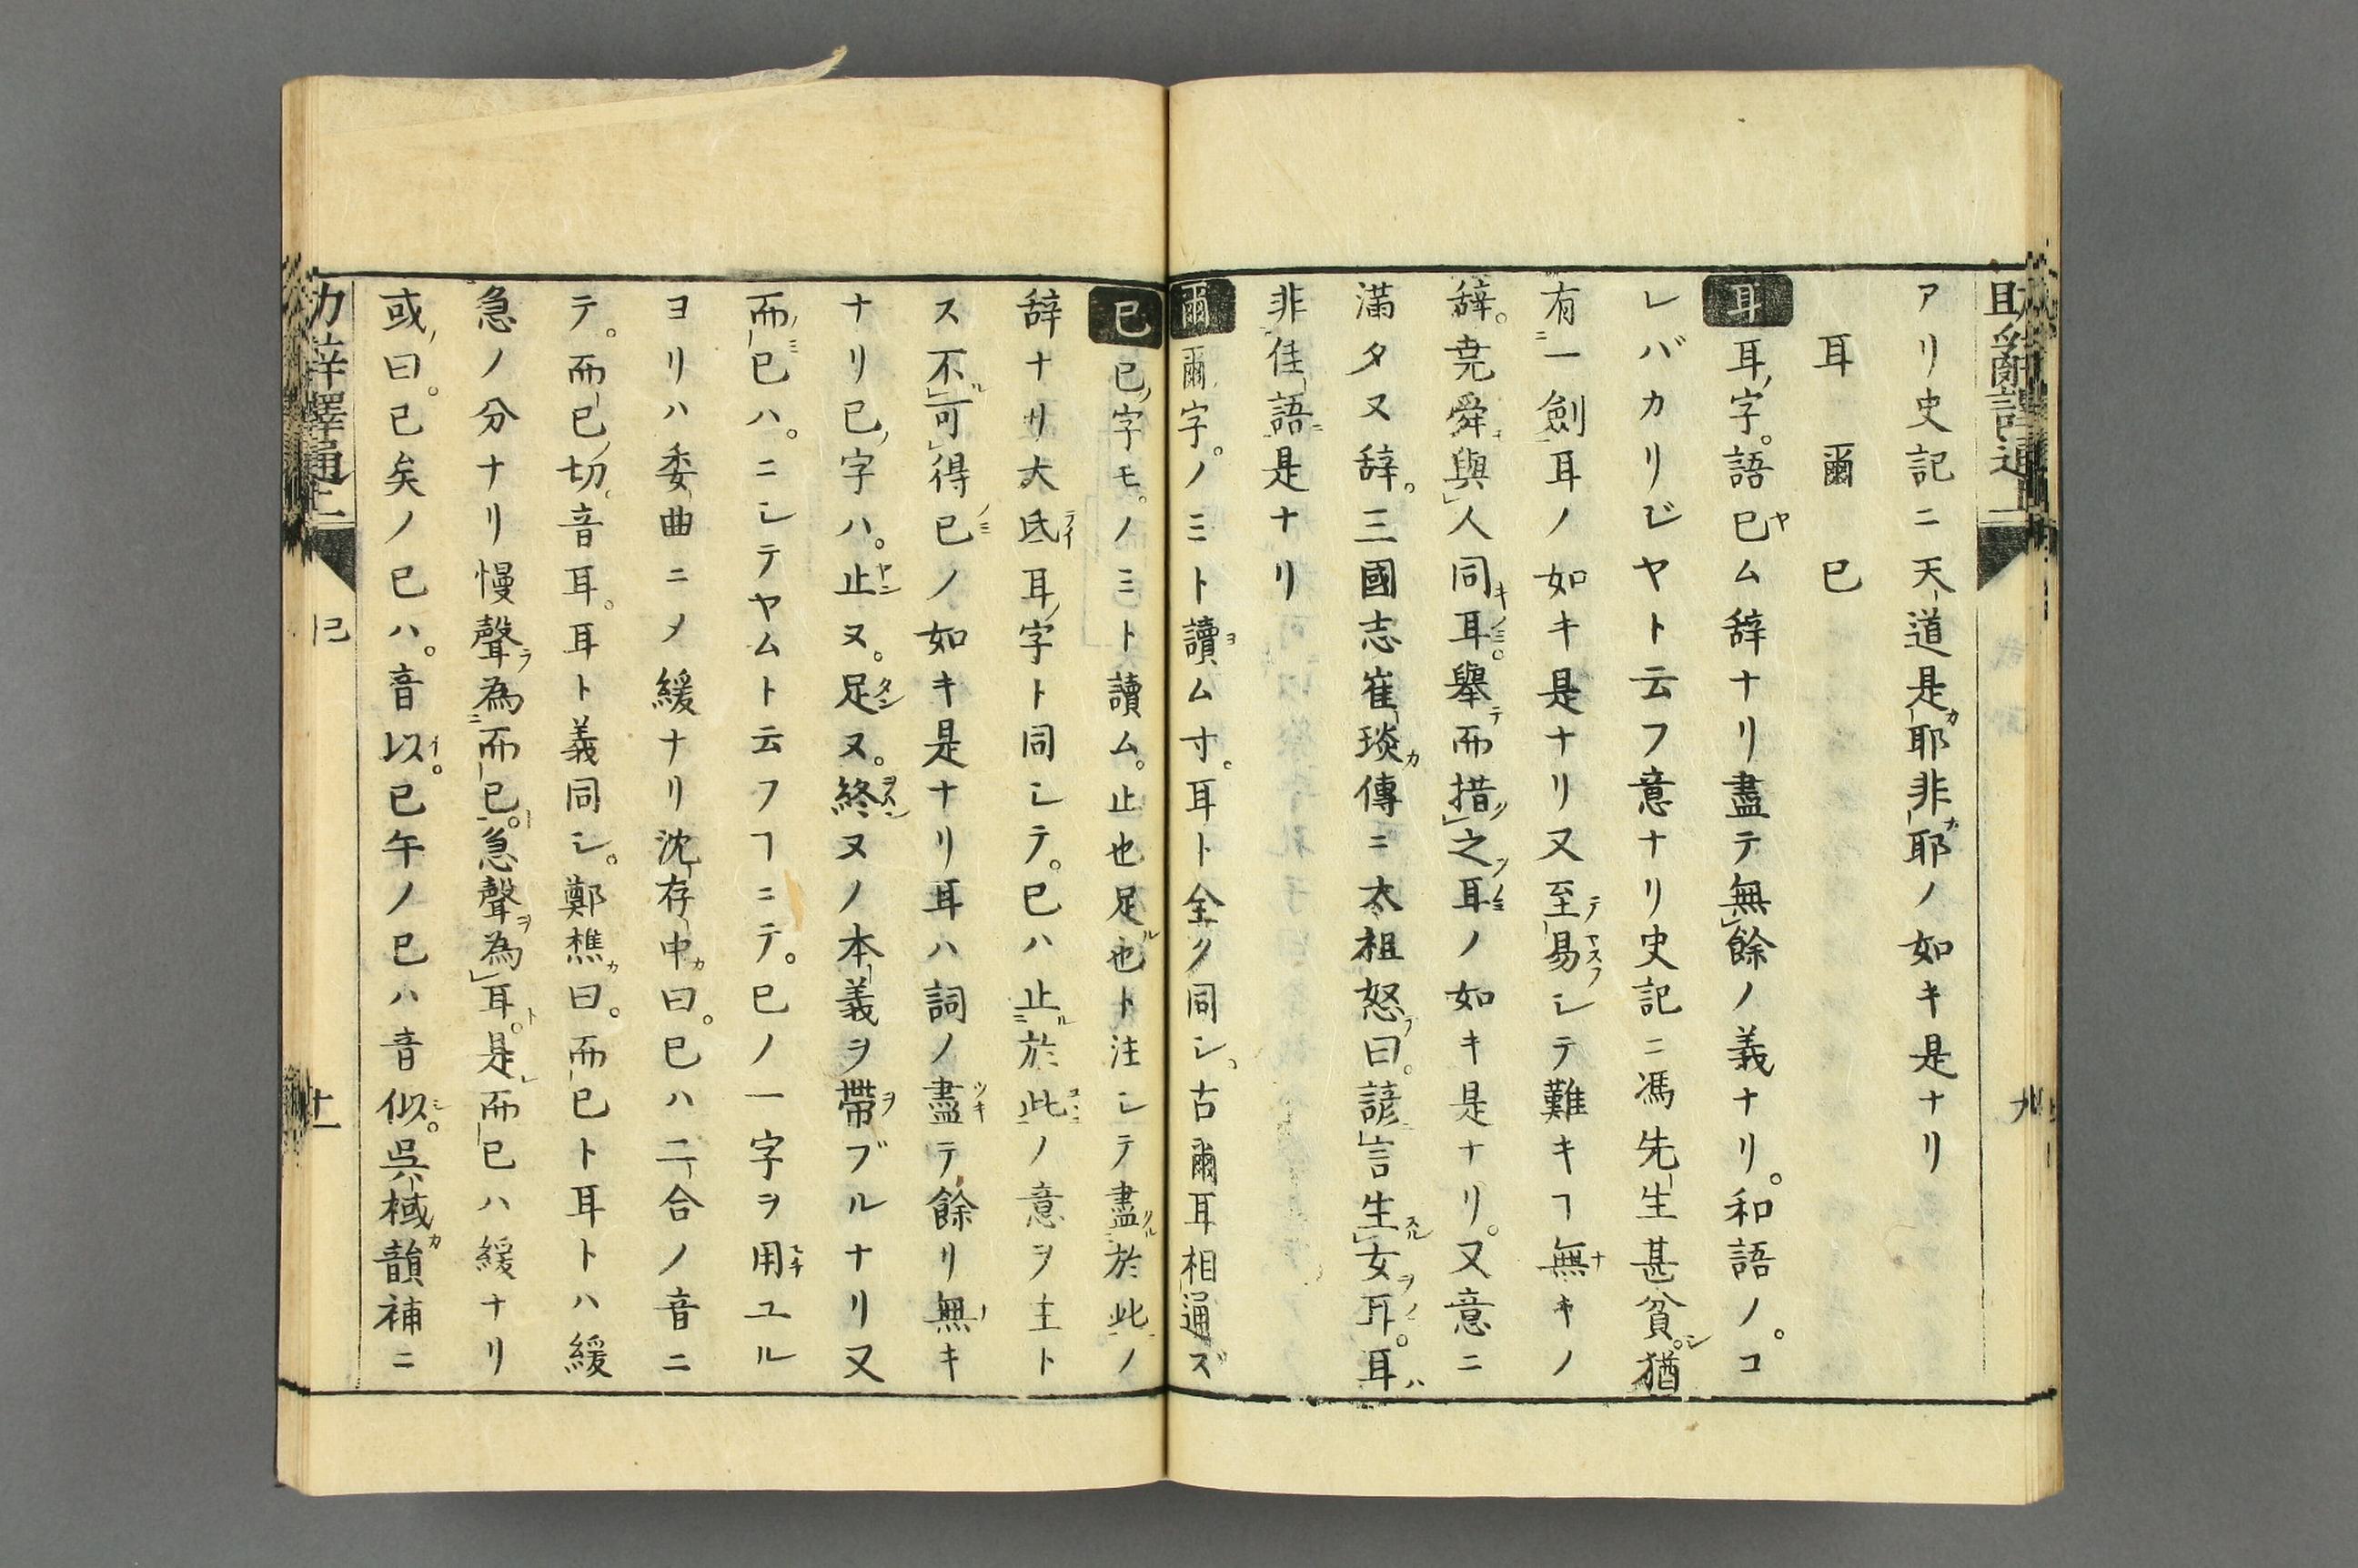 アリ史記ニ天道是耶非耶ノ如キ是ナリ
耳 爾 已
耳 耳字。語已ム辞ナリ盡テ無餘ノ義ナリ。和語ノ。コ
レバカリジヤト云フ意ナリ史記ニ馮先生甚貧。猶
有一劍耳ノ如キ是ナリ又至易シテ難キヿ無キノ
辞。尭舜與人同耳。舉而措之耳ノ如キ是ナリ。又意ニ
滿タヌ辞。三國志崔琰傳ニ太祖怒曰。諺言生女耳。耳
非佳語是ナリ
爾 爾字。ノミト讀ム寸。耳ト全ク同シ。古爾耳相通ズ
已 已字モ。ノミト讀ム。止也足也ト注シテ盡於此ノ
辞ナリ大氐耳字ト同シテ。已ハ止於此ノ意ヲ主ト
ス不可得已ノ如キ是ナリ耳ハ詞ノ盡テ餘リ無キ
ナリ已字ハ。止ヌ。足ヌ。終ヌノ本義ヲ帶ブルナリ又
而已ハ。ニシテヤムト云フヿニテ。已ノ一字ヲ用ユル
ヨリハ委曲ニメ緩ナリ沈存中曰。已ハ二合ノ音ニ
テ。而已切。音耳。耳ト義同シ。鄭樵曰。而已ト耳トハ緩
急ノ分ナリ慢聲為而已。急聲為耳。是而已ハ緩ナリ
或曰。已矣ノ已ハ。音以。已午ノ已ハ音似。呉棫韻補ニ
十一